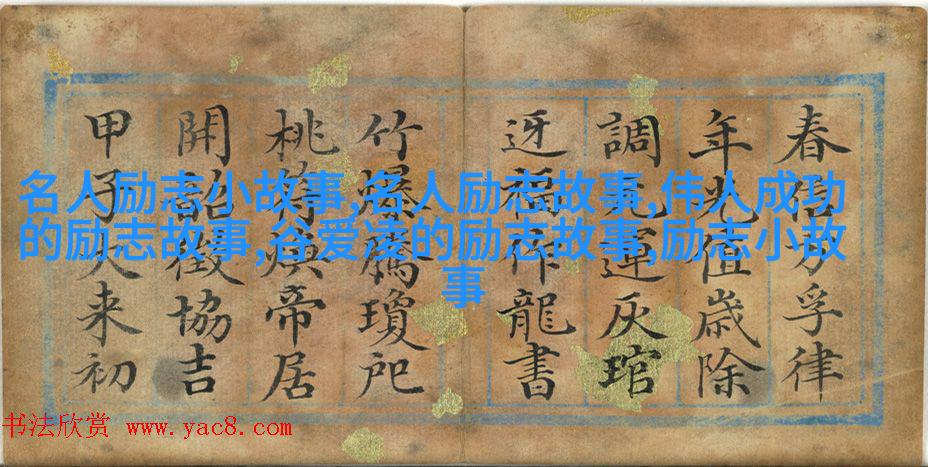 春信孚律
年光值歲除
調元運灰琯
迓福作龍書
竹爆騰瓊
桃符煥帝居
開韶徵協吉
甲子来初
名人励志小故事,名人励志故事,伟人成功
的励志故事,谷爱凌的励志故事,励志小故
事
书法欣赏 www.yac8.com